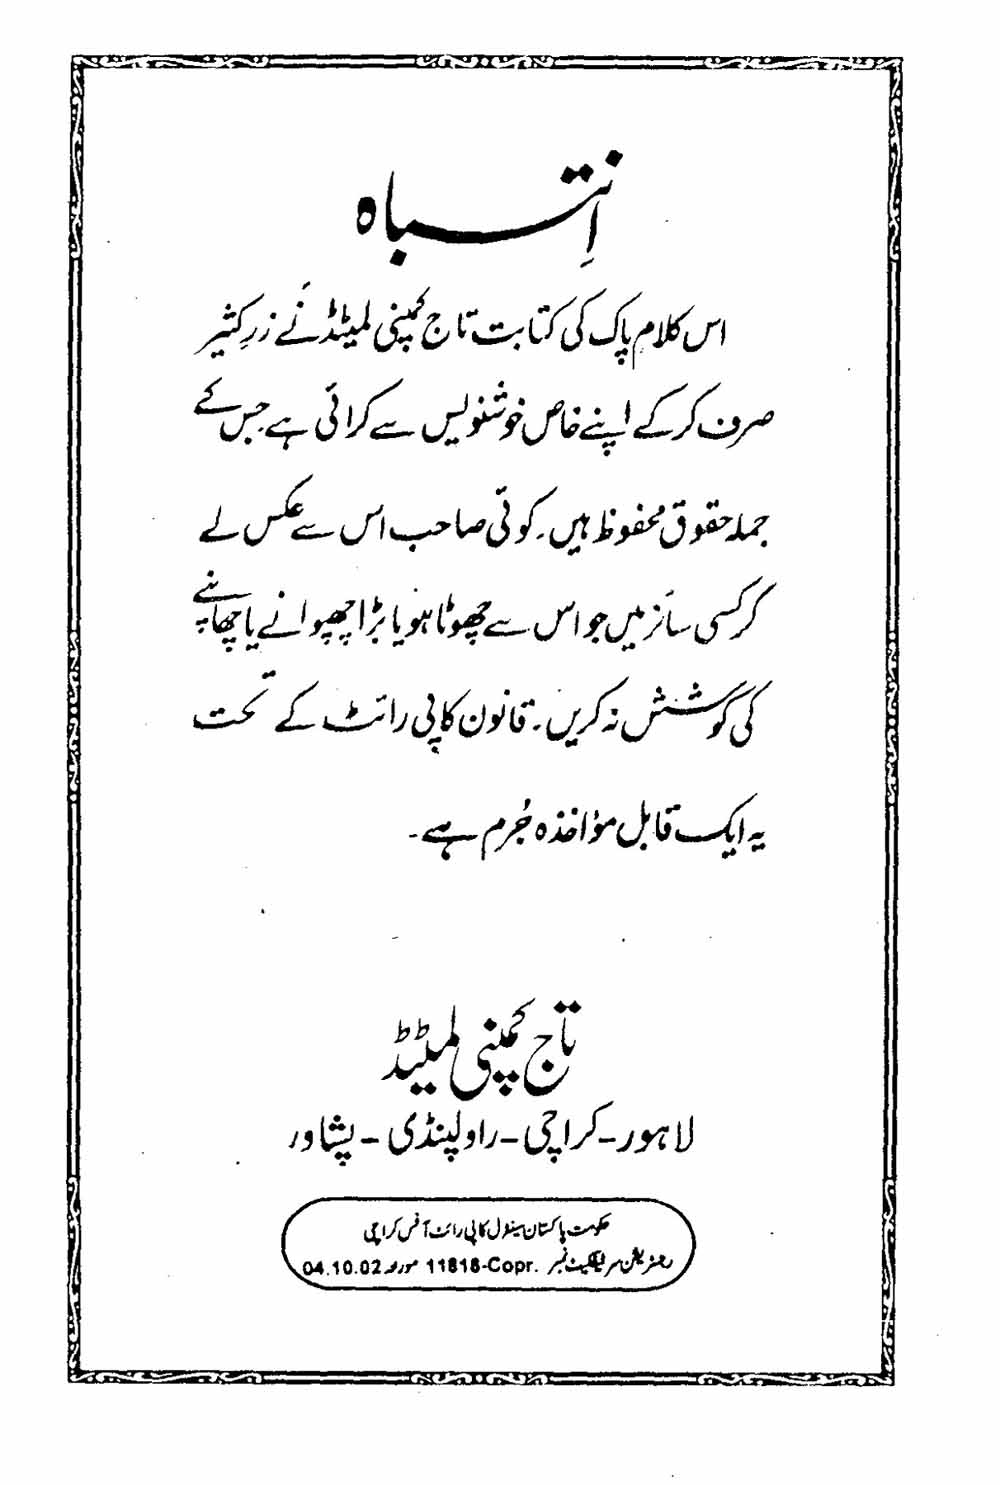 اِنتباہ
اس کلامِ پاک کی کتابت تاج کمپنی لمیٹڈ نے زرِ کثیر
صرف کر کے اپنے خاص خوشنویس سے کرائی ہے جس کے
جملہ حقوق محفوظ ہیں۔ کوئی صاحب اس سے عکس لے
کر کسی سائز میں جو اس سے چھوٹا ہو یا بڑا چھپوانے یا چھاپنے
کی کوشش نہ کریں۔ قانون کاپی رائٹ کے تحت
یہ ایک قابل مؤاخذہ جُرم ہے۔
تاج کمپنی لمیٹڈ
لاہور - کراچی - راولپنڈی - پشاور
حکومت پاکستان سینٹرل کاپی رائٹ آفس کراچی
رجسٹریشن سرٹیفکیٹ نمبر 11818-Copr. مورخہ 04.10.02